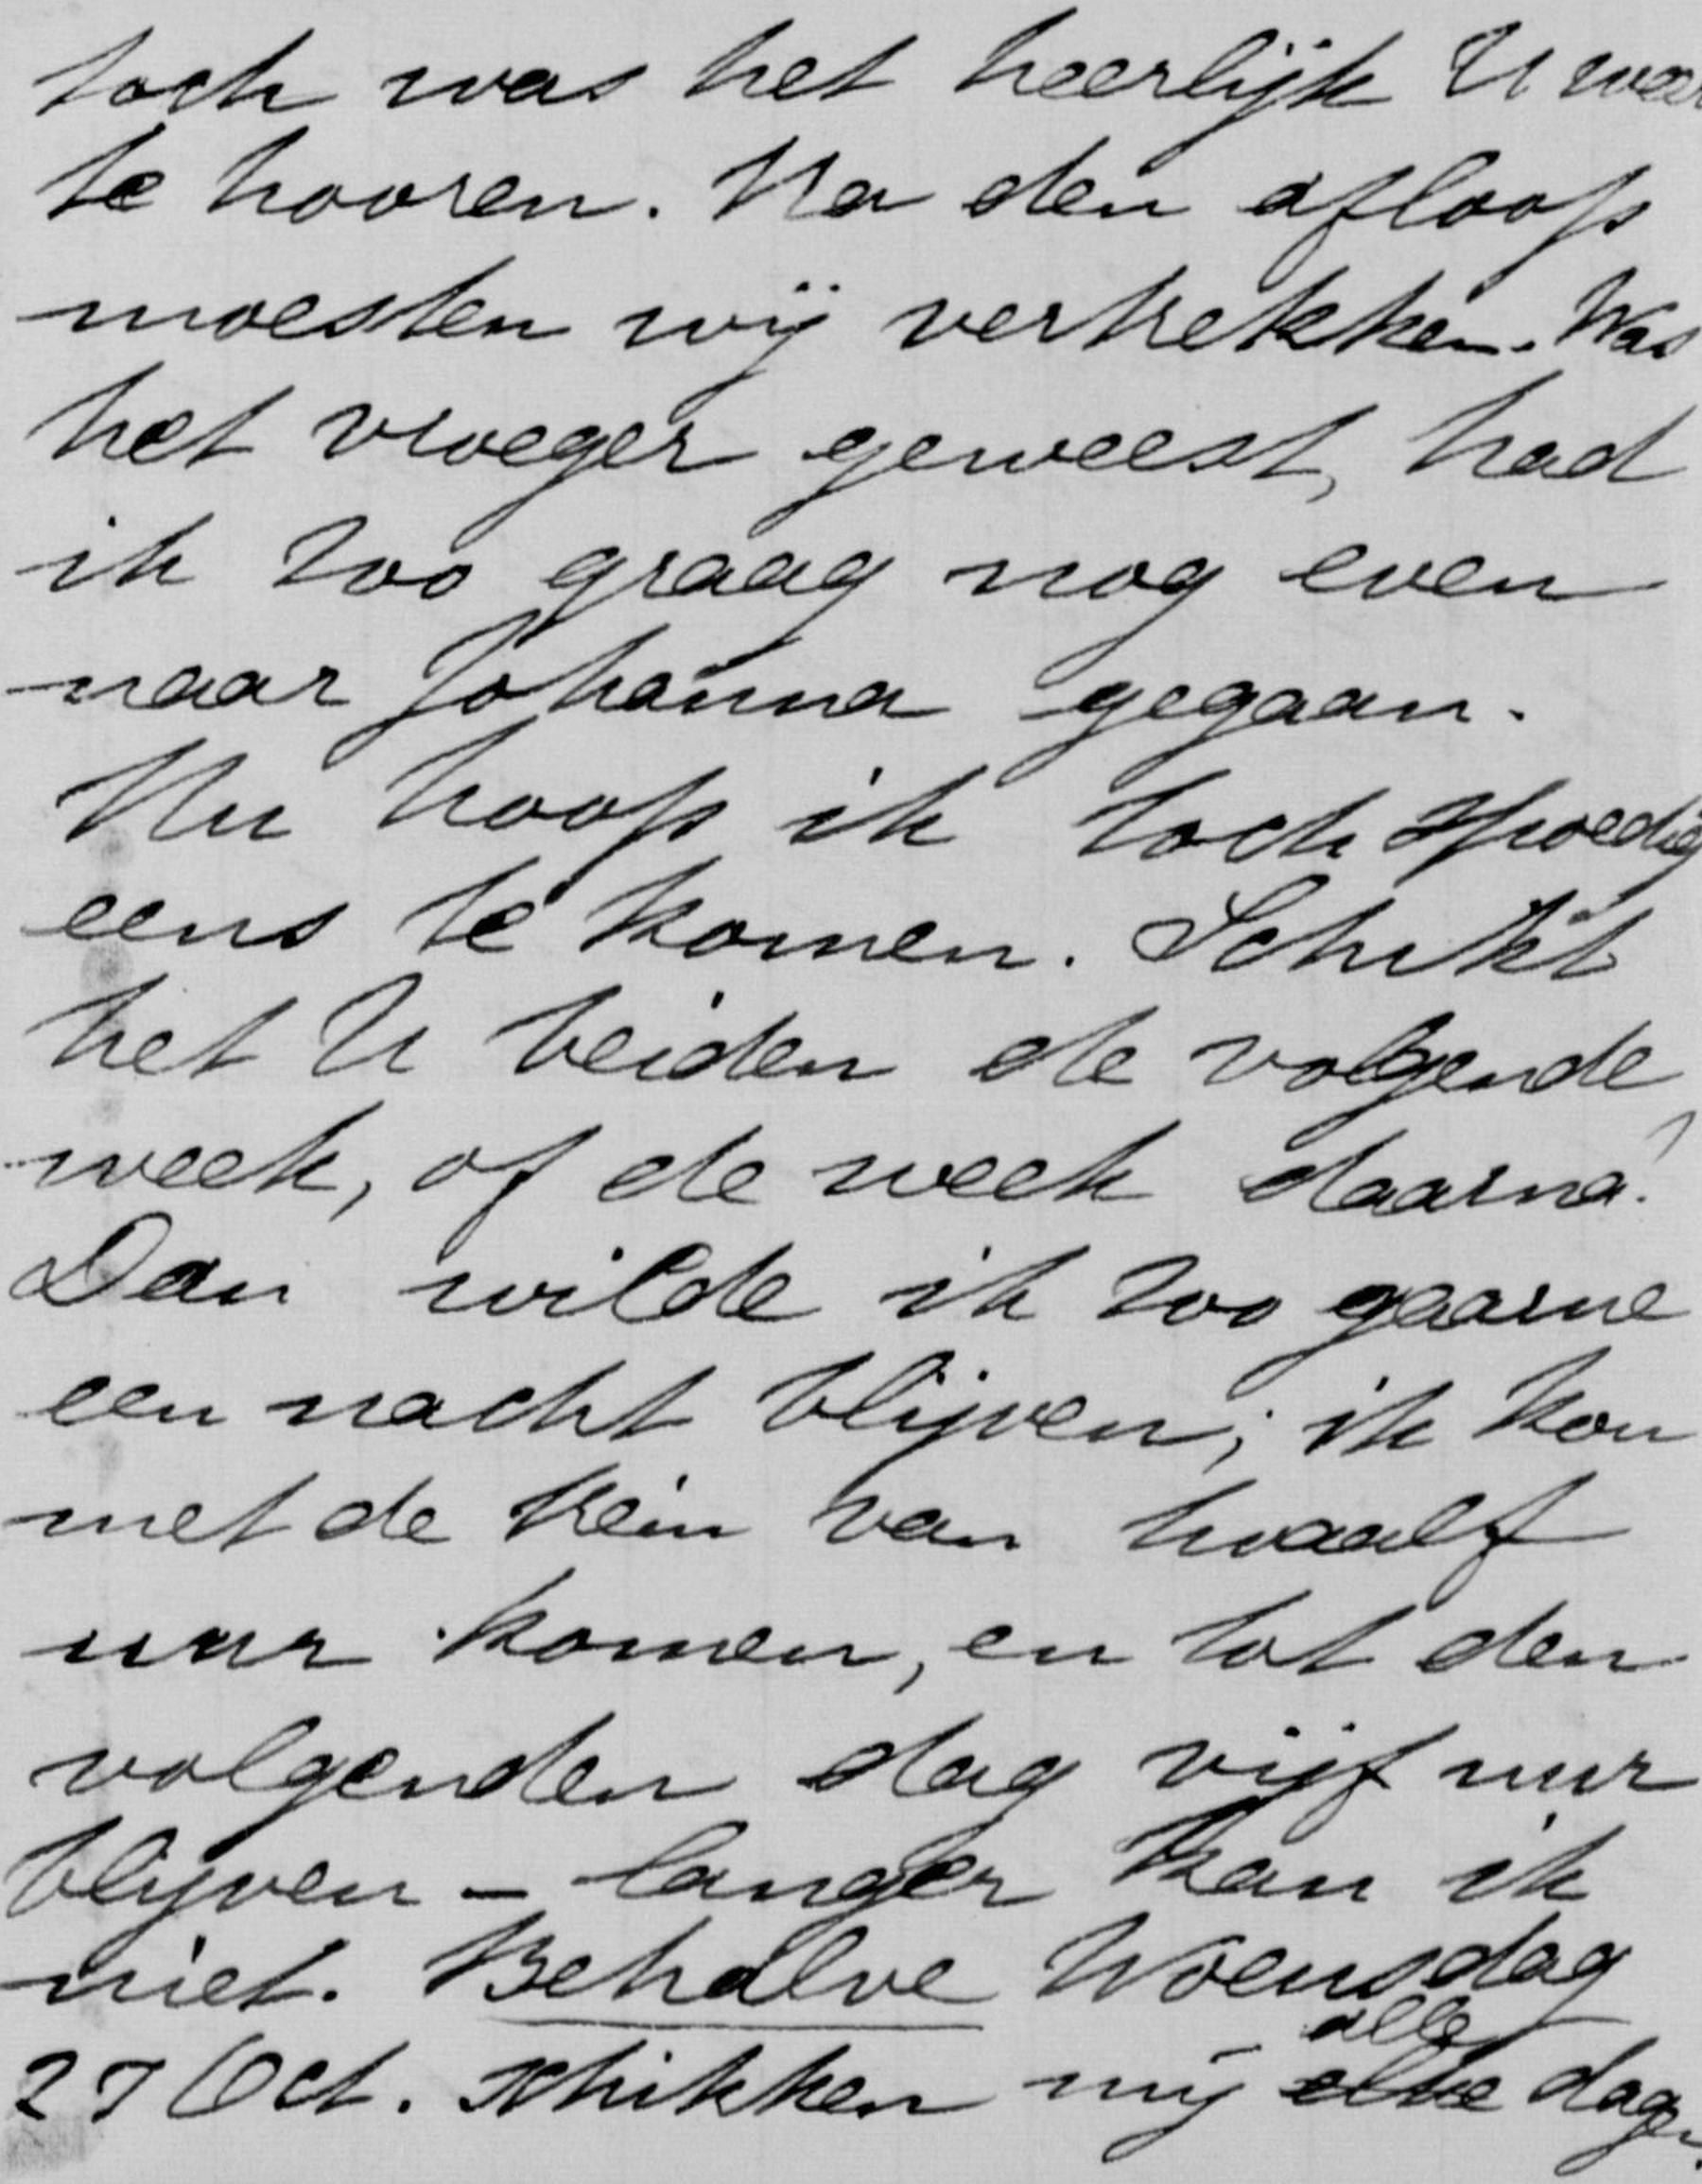 toch was het heerlijk U weer
te hooren. Na den afloop
moesten wij vertrekken. Was
het vroeger geweest, had
ik zoo graag nog even
naar Johanna gegaan.
Nu hoop ik toch spoedig
eens te komen. Schikt
het U beiden de volgende
week, of de week daarna?
Dan wilde ik zoo gaarne
een nacht blijven; ik kon
met de trein van twaalf
uur komen, en tot den
volgenden dag vijf uur
blijven – langer kan ik
niet. Behalve Woensdag
27 Oct. schikken mij alle dagen